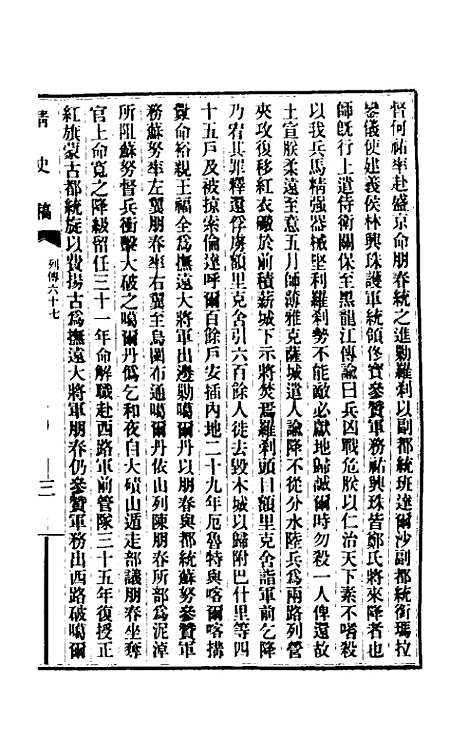 督何祐率赴盛京命朋春統之進勦羅剎以副都統班達爾沙副都統銜瑪拉
鑾儀使建義侯林興珠護軍統領佟寶參贊軍務祐興珠皆鄭氏將來降者也
師旣行上遣侍衛關保至黑龍江傳諭曰兵凶戰危朕以仁治天下素不嗜殺
以我兵馬精强器械堅利羅剎勢不能敵必獻地歸誠爾時勿殺一人俾還故
土宣朕柔遠至意五月師薄雅克薩城遣人諭降不從分水陸兵爲兩路列營
夾攻復移紅衣礮於前積薪城下示將焚焉羅剎頭目額里克舍詣軍前乞降
乃宥其罪釋還俘虜額里克舍引六百餘人徙去毀木城以歸附巴什里等四
十五戶及被掠索倫達呼爾百餘戶安插內地二十九年厄魯特與喀爾喀搆
釁命裕親王福全爲撫遠大將軍出邊勦噶爾丹以朋春與都統蘇努參贊軍
務蘇努率左翼朋春率右翼至烏闌布通噶爾丹依山列陳朋春所部爲泥淖
所阻蘇努督兵衝擊大破之噶爾丹僞乞和夜自大磧山遁走部議朋春坐奪
官上命寬之降級留任三十一年命解職赴西路軍前管隊三十五年復授正
紅旗蒙古都統旋以費揚古爲撫遠大將軍朋春仍參贊軍務出西路破噶爾
清史稿
列傳六十七
三